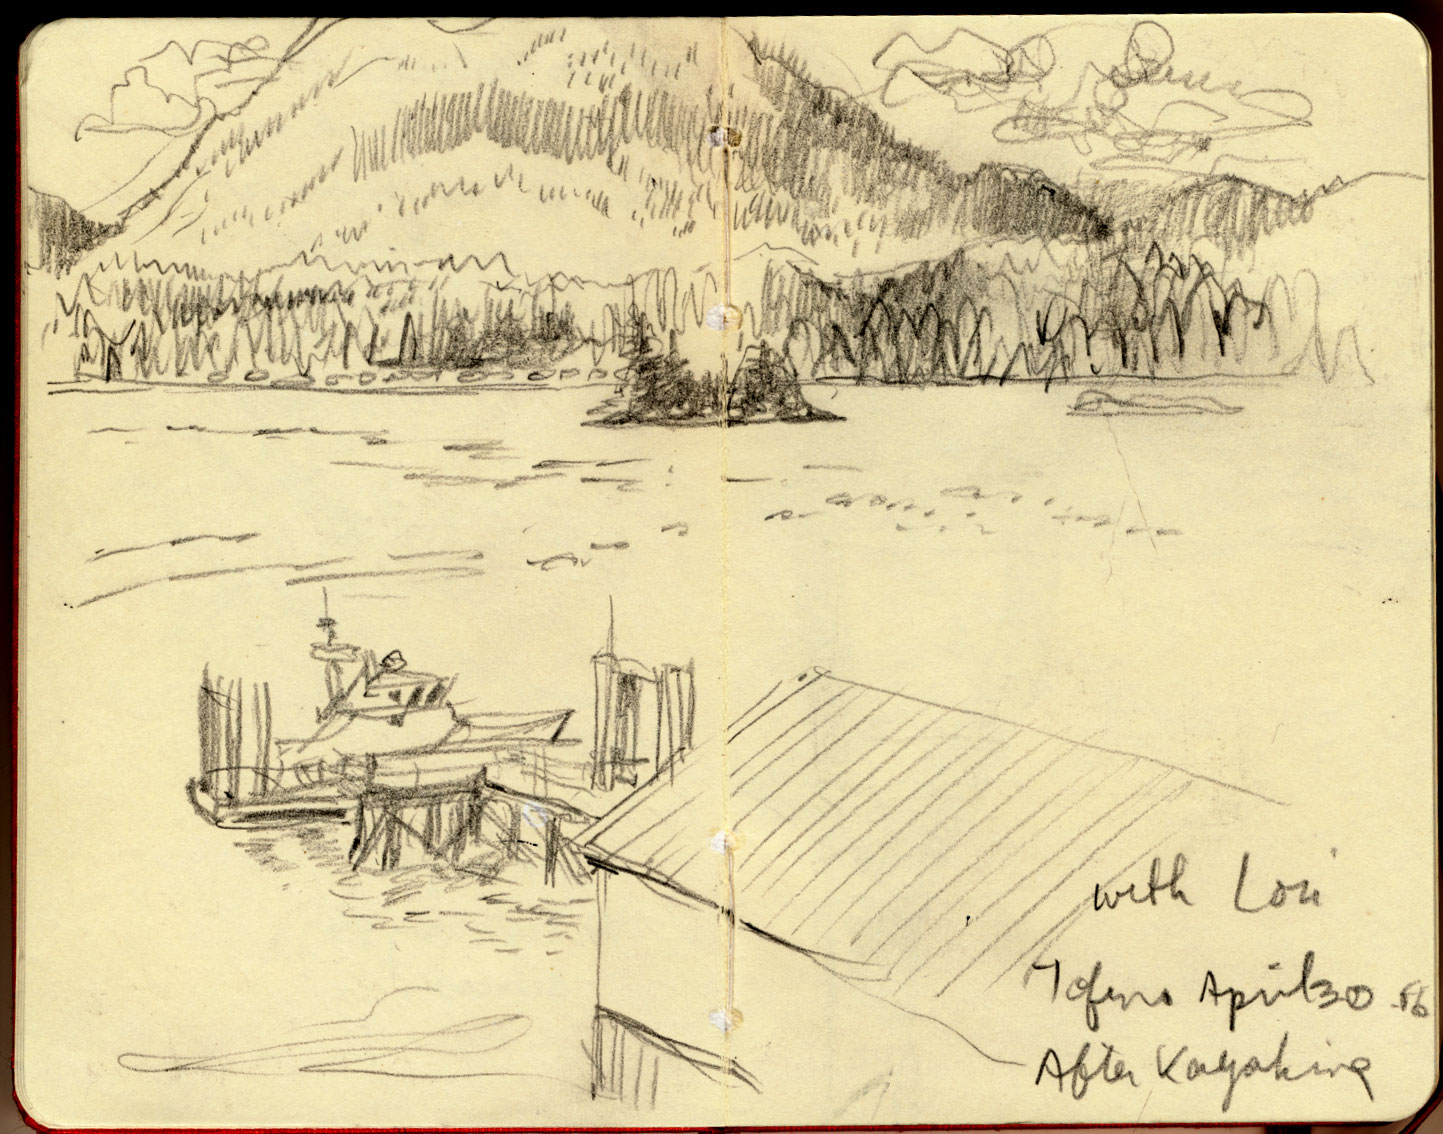 with Lori
Tofino April 30
After Kayaking